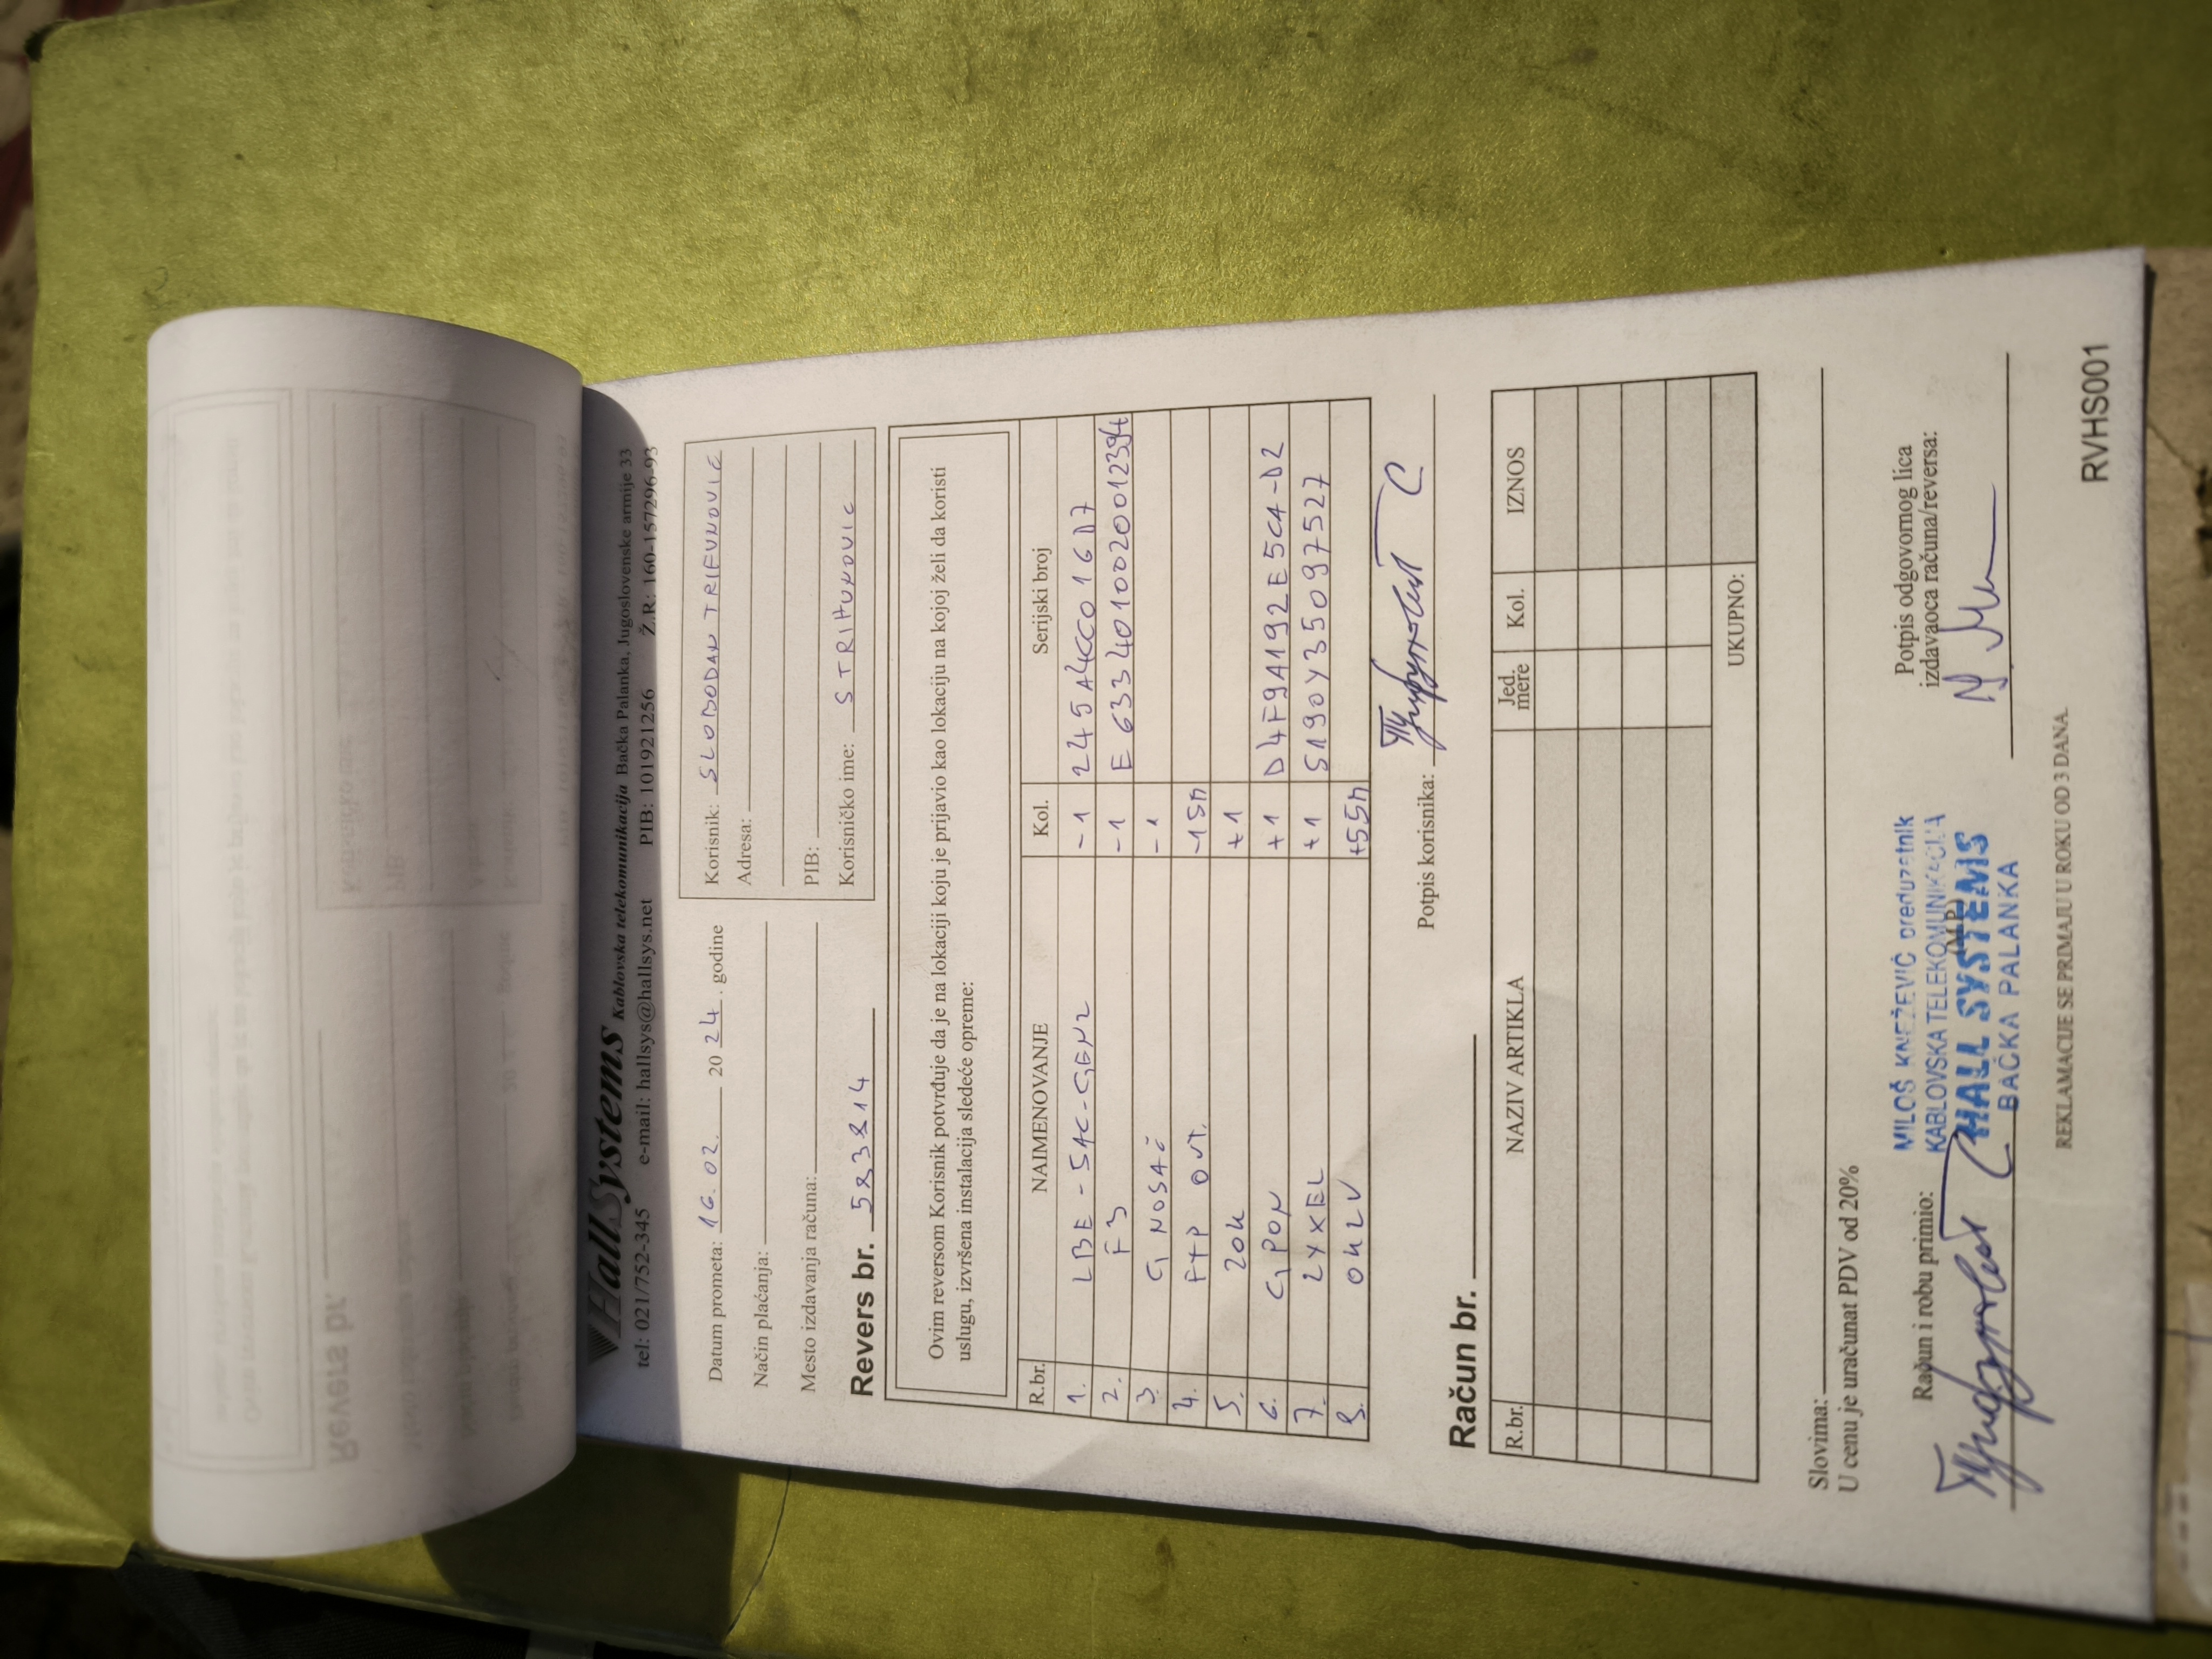 HallSystems Kablovska telekomunikacija Bačka Palanka, Jugoslovenske armije 33
tel: 021/752-345 e-mail: hallsys@hallsys.net PIB: 101921256 Ž.R: 160-157296-93
Datum prometa: 16.02. 2024. godine
Način plaćanja:
Mesto izdavanja računa:
Korisnik: SLOBODAN TRIFUNOVIĆ
Adresa:
PIB:
Korisničko ime: STRIFUNOVIC
Revers br. 523814
Ovim reversom Korisnik potvrđuje da je na lokaciji koju je prijavio kao lokaciju na kojoj želi da koristi
uslugu, izvršena instalacija sledeće opreme:
R.br. NAIMENOVANJE Kol. Serijski broj
1. LBE-5AC-GEN2 -1 245A4CC016D7
2. F3 -1 E63340100200012394
3. G NOSAČ -1
4. FTP OUT. -15m
5. 20K +1
6. GPON +1 D4F9A192E5C4-D2
7. ZYXEL +1 S190Y35097527
8. OK2V +55m
Potpis korisnika:
Račun br.
R.br. NAZIV ARTIKLA Jed. mere Kol. IZNOS
UKUPNO:
Slovima:
U cenu je uračunat PDV od 20%
Račun i robu primio:
MILOŠ KNEŽEVIĆ preduzetnik
KABLOVSKA TELEKOMUNIKACIJA
(M.P.)
HALL SYSTEMS
BAČKA PALANKA
Potpis odgovornog lica
izdavaoca računa/reversa:
REKLAMACIJE SE PRIMAJU U ROKU OD 3 DANA.
RVHS001
Revers br.